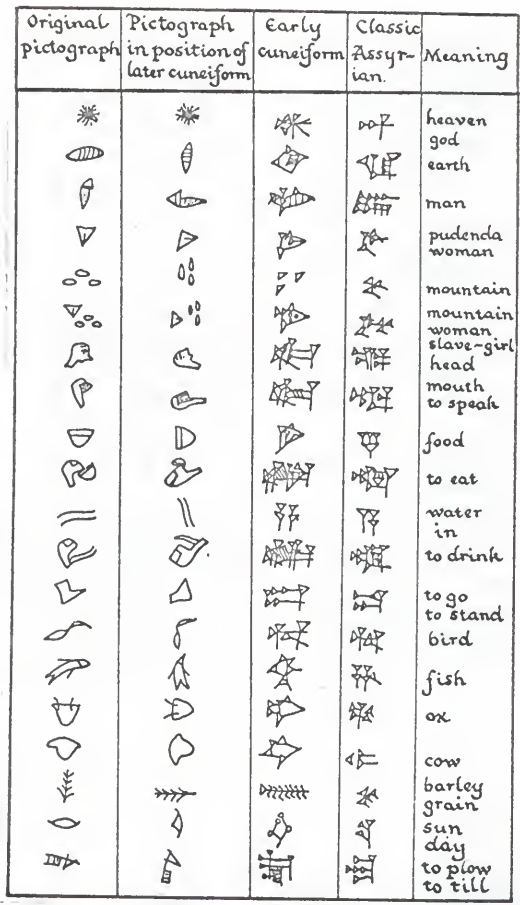 Original pictograph
Pictograph in position of later cuneiform
Early cuneiform
Classic Assyr-ian.
Meaning
heaven
god
earth
man
pudenda
woman
mountain
mountain
woman
slave-girl
head
mouth
to speak
food
to eat
water
in
to drink
to go
to stand
bird
fish
ox
cow
barley
grain
sun
day
to plow
to till